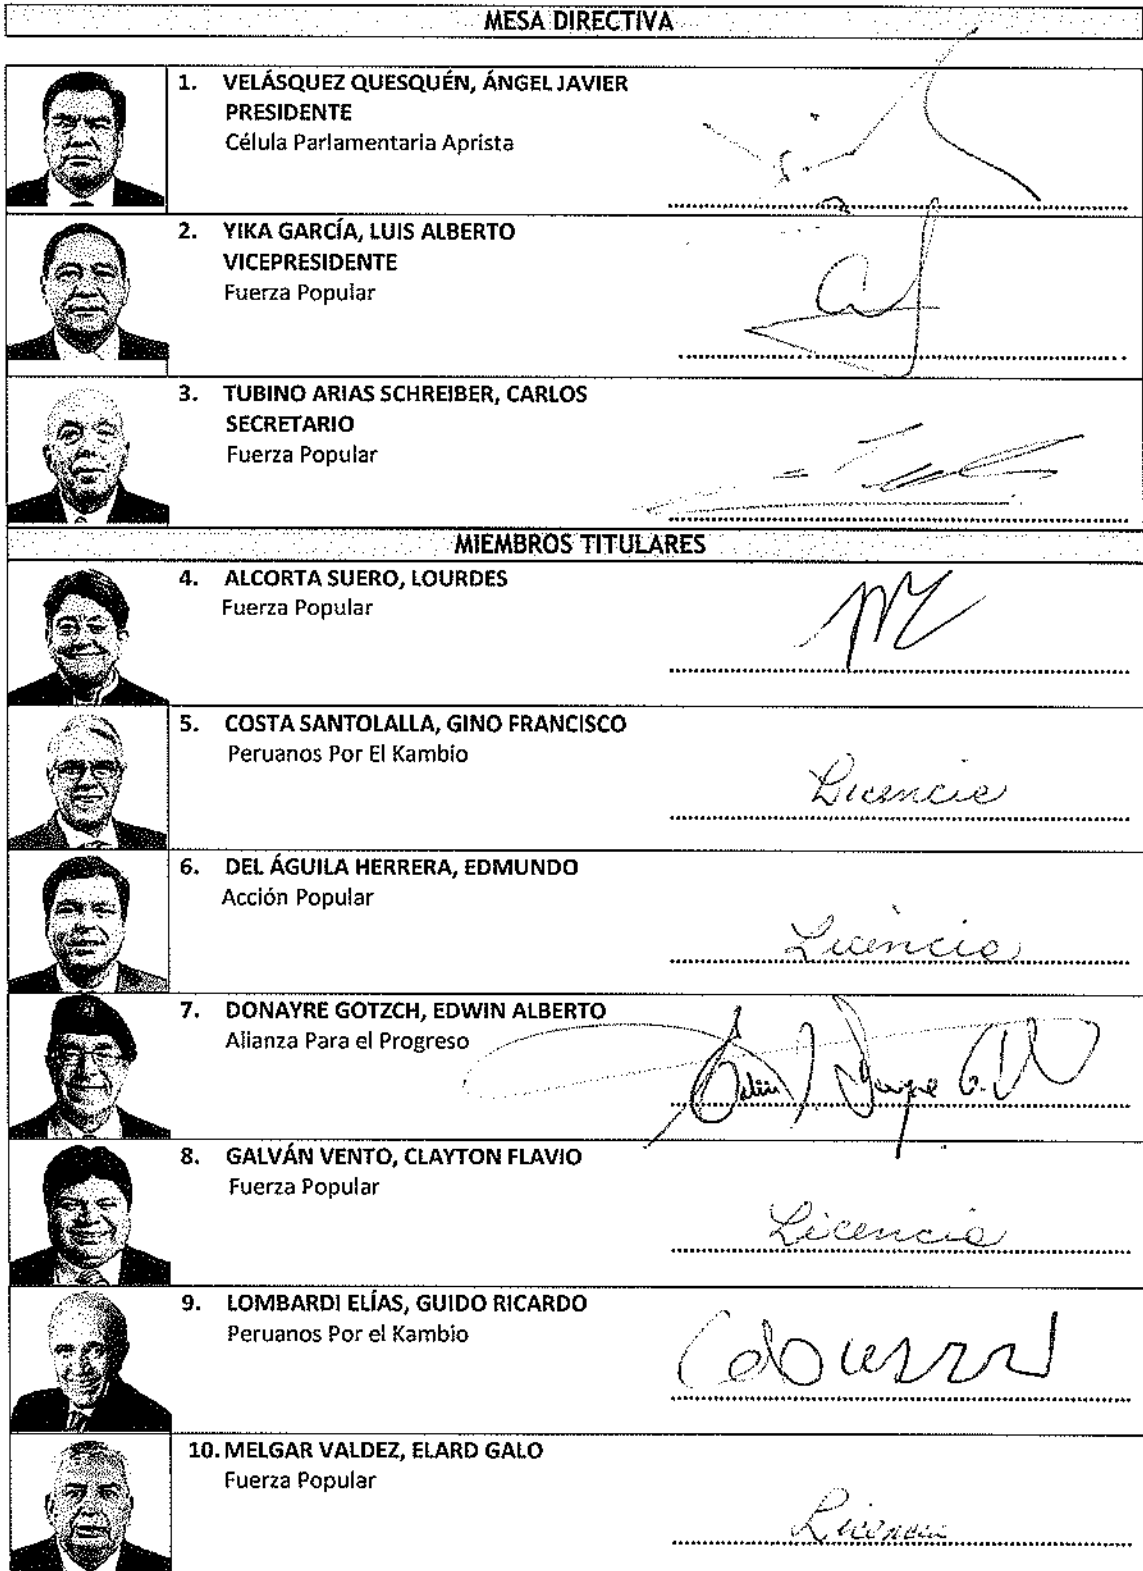 MESA DIRECTIVA
1. VELÁSQUEZ QUESQUÉN, ÁNGEL JAVIER
PRESIDENTE
Célula Parlamentaria Aprista
2. YIKA GARCÍA, LUIS ALBERTO
VICEPRESIDENTE
Fuerza Popular
3. TUBINO ARIAS SCHREIBER, CARLOS
SECRETARIO
Fuerza Popular
MIEMBROS TITULARES
4. ALCORTA SUERO, LOURDES
Fuerza Popular
5. COSTA SANTOLALLA, GINO FRANCISCO
Peruanos Por El Kambio
Licencia
6. DEL ÁGUILA HERRERA, EDMUNDO
Acción Popular
Licencia
7. DONAYRE GOTZCH, EDWIN ALBERTO
Alianza Para el Progreso
8. GALVÁN VENTO, CLAYTON FLAVIO
Fuerza Popular
Licencia
9. LOMBARDI ELÍAS, GUIDO RICARDO
Peruanos Por el Kambio
10. MELGAR VALDEZ, ELARD GALO
Fuerza Popular
Licencia